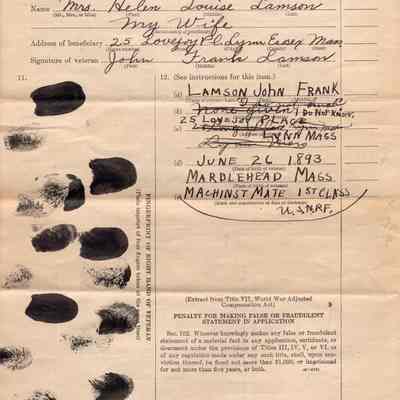 Name Mrs. Helen Louise Lamson
(Mr., Mrs., or Miss) (First) (Middle) (Last)
My Wife
(Relationship of beneficiary)
Address of beneficiary 25 Lovejoy Pl. Lynn Essex Mass
Signature of veteran John Frank Lamson
(First) (Middle) (Last)
11.
12. (See instructions for this item.)
(a) LAMSON JOHN FRANK
None Given DO NOT KNOW,
25 LOVEJOY PLACE
LYNN MASS
Lynn Mass
(d) JUNE 26 1893
(Date of birth of veteran)
MARBLEHEAD MASS
(Place of birth of veteran)
MACHINST MATE 1ST CLASS
(Rank and organization at date of discharge)
U.S.N.R.F.
FINGERPRINT OF RIGHT HAND OF VETERAN
(Extract from Title VII, World War Adjusted
Compensation Act)
PENALTY FOR MAKING FALSE OR FRAUDULENT
STATEMENT IN APPLICATION
Sec. 702. Whoever knowingly makes any false or fraudulent
statement of a material fact in any application, certificate, or
document under the provisions of Titles III, IV, V, or VI, or
of any regulation made under any such title, shall, upon con-
viction thereof, be fined not more than $1,000, or imprisoned
for not more than five years, or both.